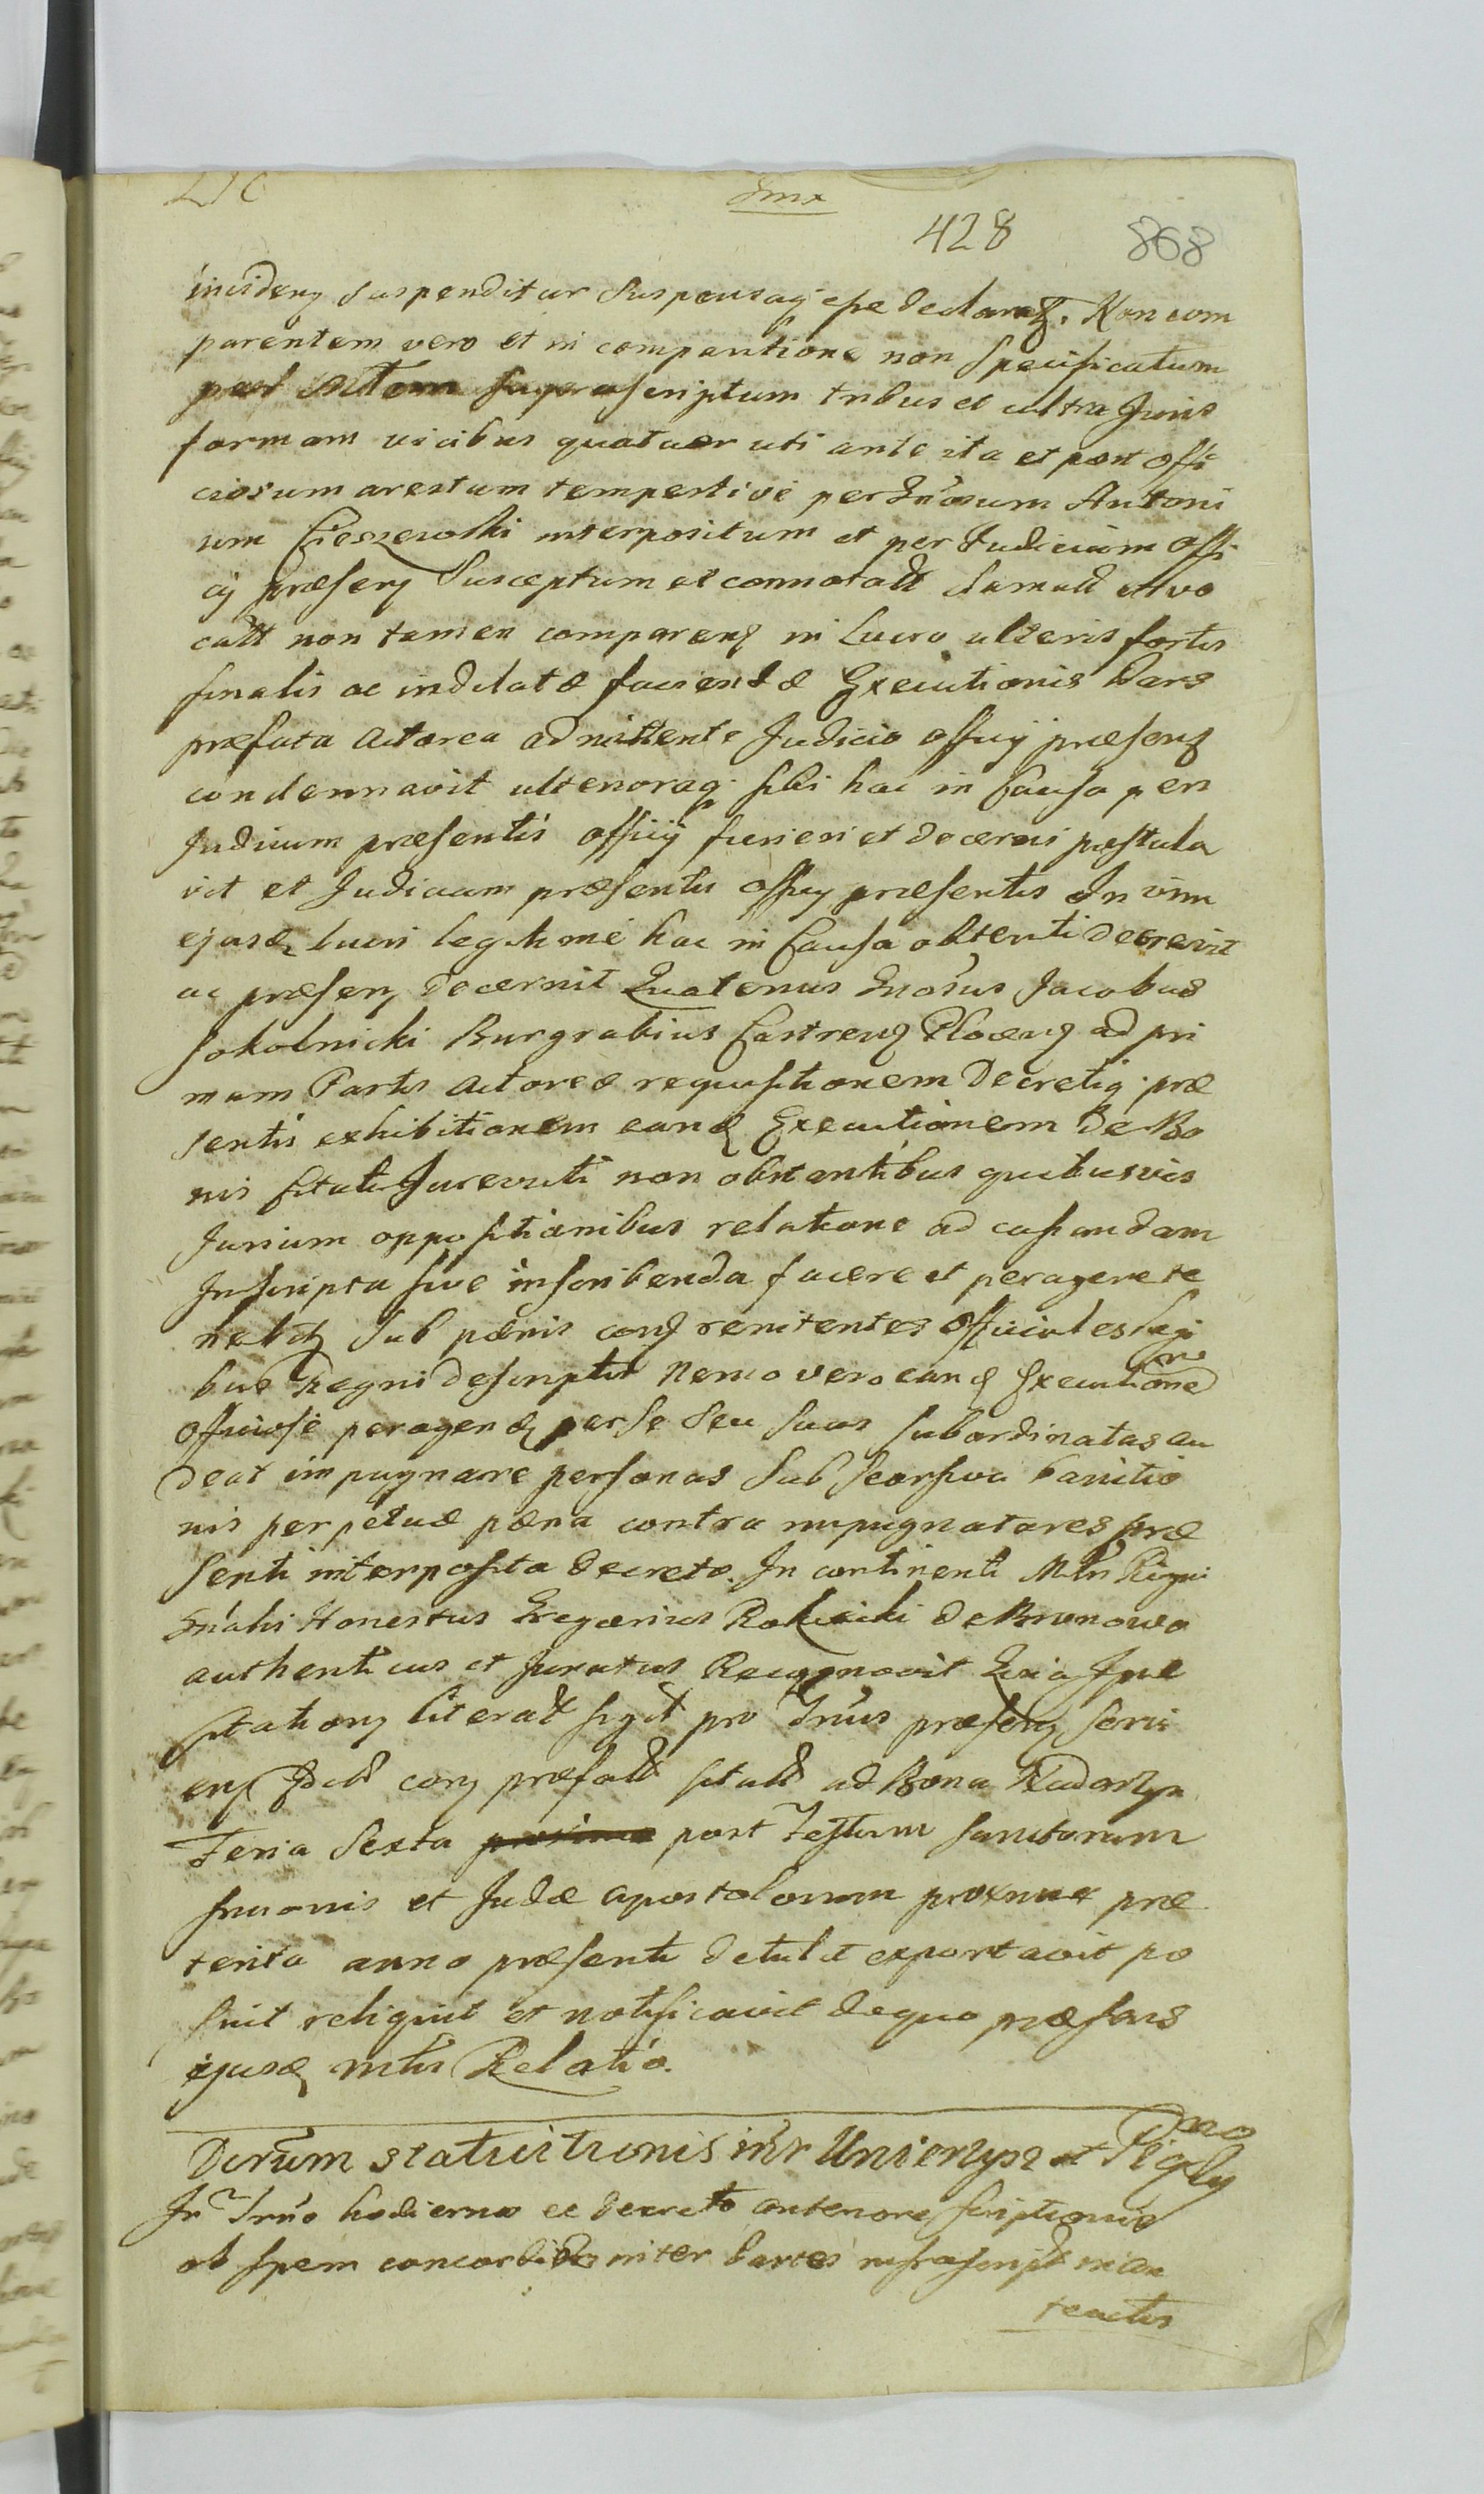 428 868
incidenz suspenditur suspensaq esse declaratz. Non com
parentem vero et in comparitione non specificatum
supra scriptum tribus et ultra Juris
formam vicibus quatuor uti ante ita et post offi
ciosum arestum tempestive per Gnosum Antoni
um Cieszewski interpositum et per Judicium offi
cij præsenz susceptum et connotatt clamatt et vo
catt non tamen comparenz in Lucro ulteris fortis
finalis ac indilatæ faciendæ Executionis Pars
præfata actorea admittente Judicio officij præsenz
condemnavit ulterioraq sibi hac in Causa per
Judicium præsentis officij fieri et decerni postula
vit et Judicium præsentis officij præsentis In vim
ejusd lucri legitimè hac in Causa obtenti decrevit
ac præsenz decernit Quatenus Gnosus Jacobus
Sokolnicki Burgrabius Castrenz Plocenz ad pri
mam Partis actoreæ requisitionem Decretiq præ
sentis exhibitionem eand Executionem De Bo
nis Citati Jurevicti non obstantibus quibusvis
Jurium oppositionibus relatione ad cassandam
Inscripta sive inscribenda facere et peragere te
nebitz Sub pænis conz renitentes officiales legi
bus Regni descriptis Nemo vero eand Executione
officiose peragend per se seu suas subordinatas au
deat impugnare personas sub seorsiva banitio
nis perpetuæ pæna contra impugnatores præ
senti interposita decreto. In continenti Mtris Regni
Gnalis Honestus Gregorius Rokicki de Brunowo
authenticus et Juratus Recognovit Quia Ipse
Citationz literatt pro Trnis præsenz servi
enz conz præfatt citatt ad Bona Nadarzyn
Feria Sexta post Festum Sanctorum
Simonis et Judæ apostolorum proxime præ
terita anno præsenti detulit exportavit po
suit reliquit et notificavit de quo præsens
ejusd mtris Relatio.
Dcrum statuitionis intr Unierzysz et
In Trno hodierno ex decreto anteriore
ob spem concordiæ inter Partes infrascript in
tentis